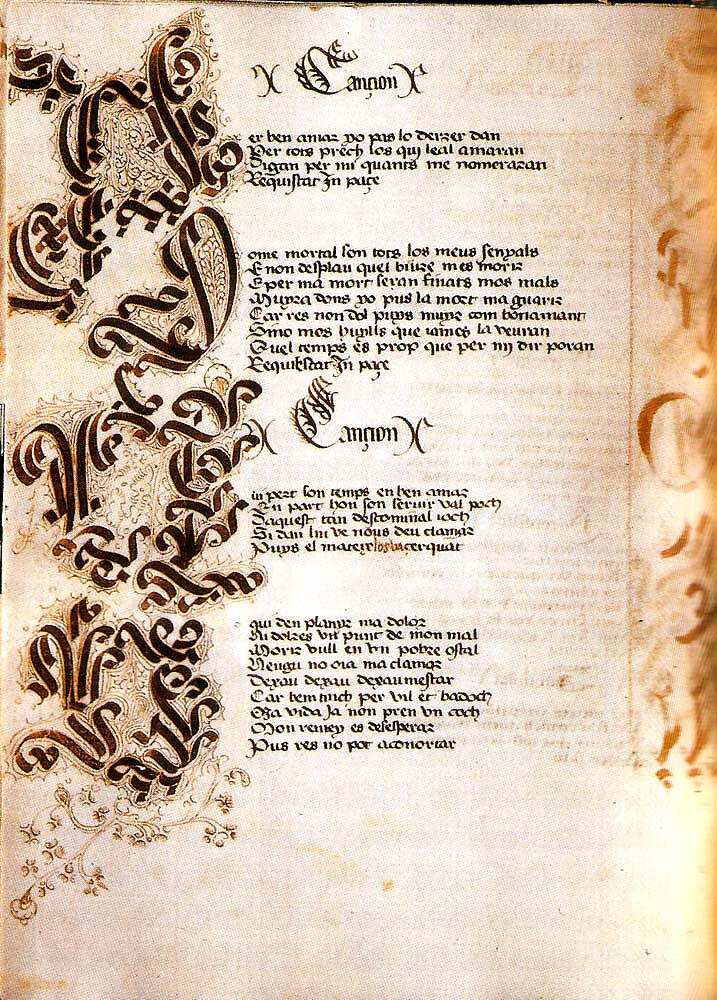 Cançion
er ben amar yo pas lo derrer dan
Per tots prech los qui leal amaran
Digan per mi quants me nomeraran
Requiescat In paçe
ome mortal son tots los meus senyals
E non desplau quel biure mes morir
E per ma mort seran finats mos mals
Muyra dons yo pus la mort ma guarir
Car res non dol puys muyr com bonamant
Sino mos huylls que iames la veuran
Quel temps es prop que per mi dir poran
Requiescat In paçe
Cançion
pert son temps en ben amar
En part hon son seruir val poch
Daquest tan descominal ioch
Si dan liu ve nous deu clamar
Puys el mateix cerquat
qui den planyr ma dolor
Ni dolrer un punt de mon mal
Morir vull en un pobre ostal
Nengu no oia ma clamor
Dexau dexau dexaumestar
Car bem tinch per vil et badoch
Ma vida Ja non pren un coch
Mon remey es desesperar
Pus res no pot aconortar